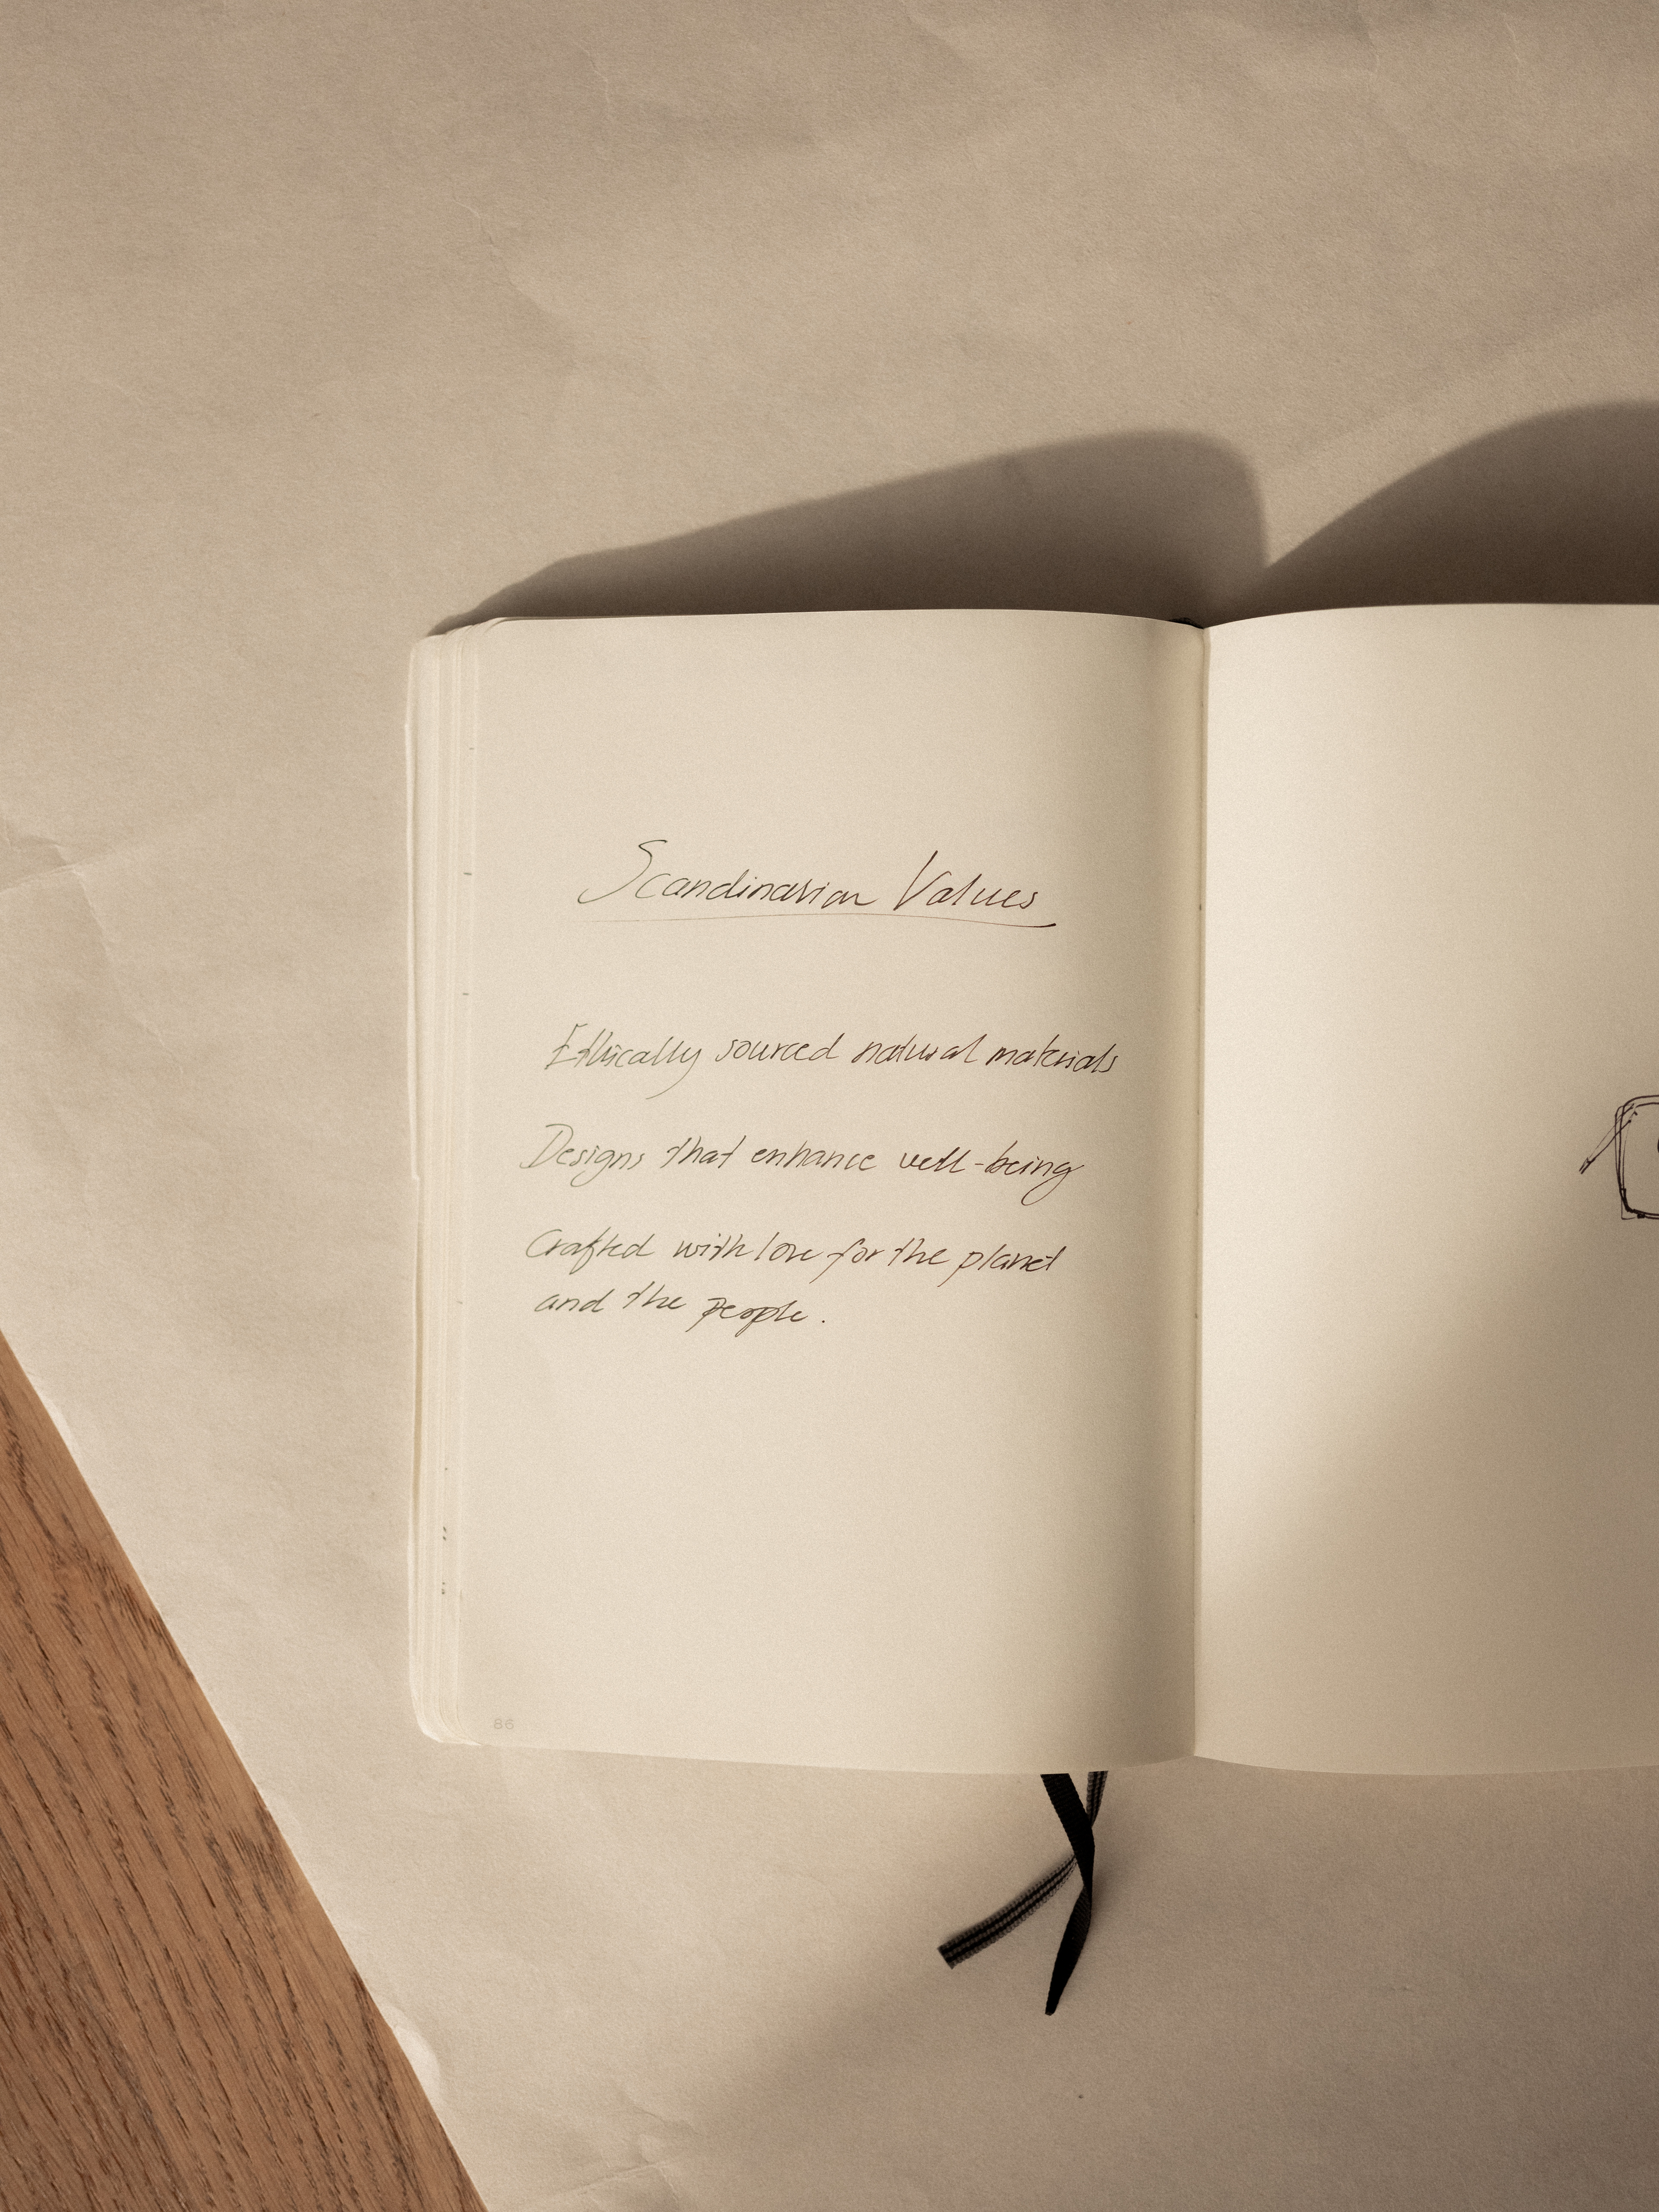 Scandinavian Values
Ethically sourced natural materials
Designs that enhance well-being
Crafted with love for the planet
and the people.
86